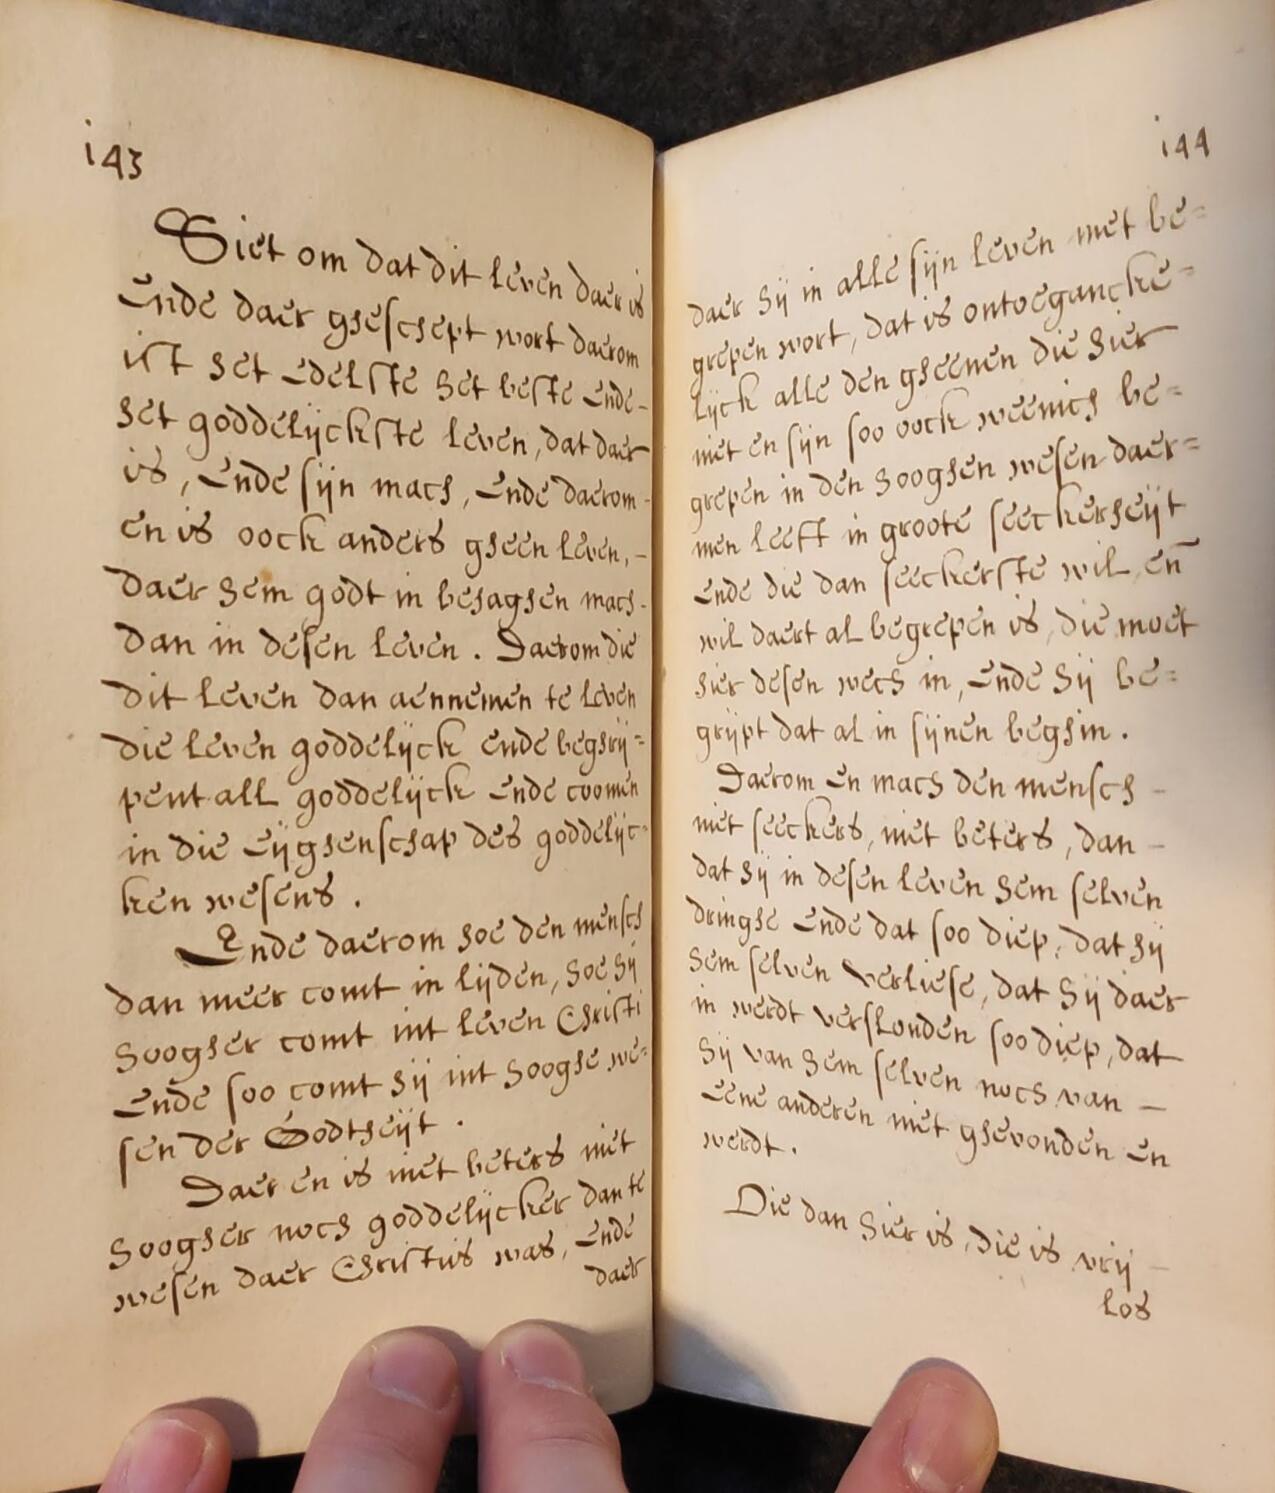 143
Siet om dat dit leven daer is
Ende daer gheschept wort daerom
ist het Edelste het beste Ende-
het goddelijckste leven, dat daer
is, Ende sijn mach, Ende daerom-
en is oock anders gheen leven,-
daer hem godt in behaghen mach-
dan in desen leven. Daerom die
dit leven dan aennemen te leven
die leven goddelijck ende beghrij=
pent all goddelijck Ende coomen
in die Eijghenschap des goddelijc-
ken wesens.
Ende daerom hoe den mensch
dan meer comt in lijden, hoe hij
hoogher comt int leven Christi
Ende soo comt hij int hooghe we=
sen der Godtheijt.
Daer en is niet beters niet
hoogher noch goddelijcker dan te
wesen daer Christus was, Ende
daer
144
daer hij in alle sijn leven met be=
grepen wort, dat is ontoegancke=
lijck alle den gheenen die hier
niet en sijn soo oock weenich be=
grepen in den hooghen wesen daer=
men leeft in groote seeckerheijt
Ende die dan seeckerste wil, eñ
wil daert al begrepen is, die moet
hier desen wech in, Ende hij be=
grijpt dat al in sijnen beghin.
Daerom En mach den mensch -
niet seeckers, niet beters, dan -
dat hij in desen leven hem selven
dringhe Ende dat soo diep, dat hij
hem selven verliese, dat hij daer
in werdt verslonden soo diep, dat
hij van hem selven noch van -
Eene anderen niet ghevonden En
werdt.
Die dan hier is, die is vrij -
los